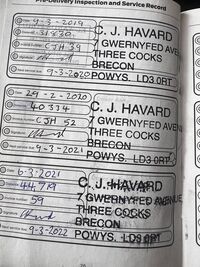 Pre-Delivery Inspection and Service Record
Date: 9-3-2019
31830
CJH 39
Signature:
Next service due: 9-3-2020
C. J. HAVARD
7 GWERNYFED AVENUE
THREE COCKS
BRECON
POWYS. LD3 0RT
Date: 29-2-2020
40334
CJH 52
Signature:
Next service due: 9-3-2021
C. J. HAVARD
7 GWERNYFED AVENUE
THREE COCKS
BRECON
POWYS. LD3 0RT
Date: 6-3-2021
44719
59
Signature:
Next service due: 9-3-2022
C. J. HAVARD
7 GWERNYFED AVENUE
THREE COCKS
BRECON
POWYS. LD3 0RT